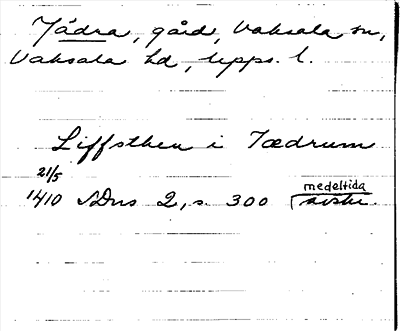 Jädra, gård, Vaksala sn,
Vaksala hd, Upps. l.
Liffsthen i Jædrum
21/5
1410 SDns 2, s. 300
medeltida
avskr.